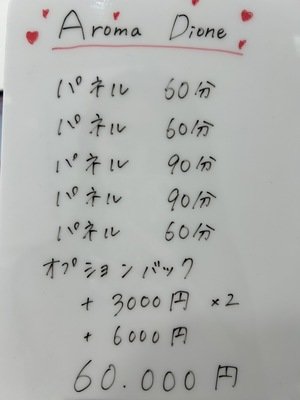 Aroma Dione
パネル 60分
パネル 60分
パネル 90分
パネル 90分
パネル 60分
オプションバック
+ 3000円 ×2
+ 6000円
60.000円